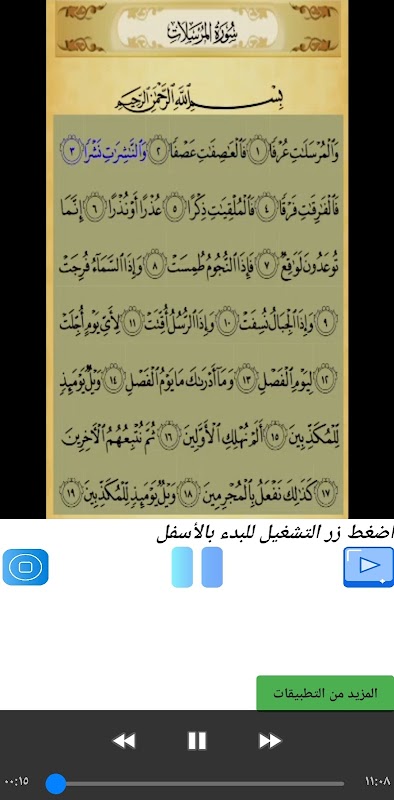 سُورَةُ الْمُرْسَلَات
بِسْمِ ٱللَّهِ ٱلرَّحْمَٰنِ ٱلرَّحِيمِ
وَٱلْمُرْسَلَٰتِ عُرْفًا ١ فَٱلْعَٰصِفَٰتِ عَصْفًا ٢ وَٱلنَّٰشِرَٰتِ نَشْرًا ٣
فَٱلْفَٰرِقَٰتِ فَرْقًا ٤ فَٱلْمُلْقِيَٰتِ ذِكْرًا ٥ عُذْرًا أَوْ نُذْرًا ٦ إِنَّمَا
تُوعَدُونَ لَوَٰقِعٌ ٧ فَإِذَا ٱلنُّجُومُ طُمِسَتْ ٨ وَإِذَا ٱلسَّمَآءُ فُرِجَتْ
٩ وَإِذَا ٱلْجِبَالُ نُسِفَتْ ١٠ وَإِذَا ٱلرُّسُلُ أُقِّتَتْ ١١ لِأَيِّ يَوْمٍ أُجِّلَتْ
١٢ لِيَوْمِ ٱلْفَصْلِ ١٣ وَمَآ أَدْرَىٰكَ مَا يَوْمُ ٱلْفَصْلِ ١٤ وَيْلٌ يَوْمَئِذٍ
لِّلْمُكَذِّبِينَ ١٥ أَلَمْ نُهْلِكِ ٱلْأَوَّلِينَ ١٦ ثُمَّ نُتْبِعُهُمُ ٱلْءَاخِرِينَ
١٧ كَذَٰلِكَ نَفْعَلُ بِٱلْمُجْرِمِينَ ١٨ وَيْلٌ يَوْمَئِذٍ لِّلْمُكَذِّبِينَ ١٩
اضغط زر التشغيل للبدء بالأسفل
المزيد من التطبيقات
٠٠:١٥
١١:٠٨